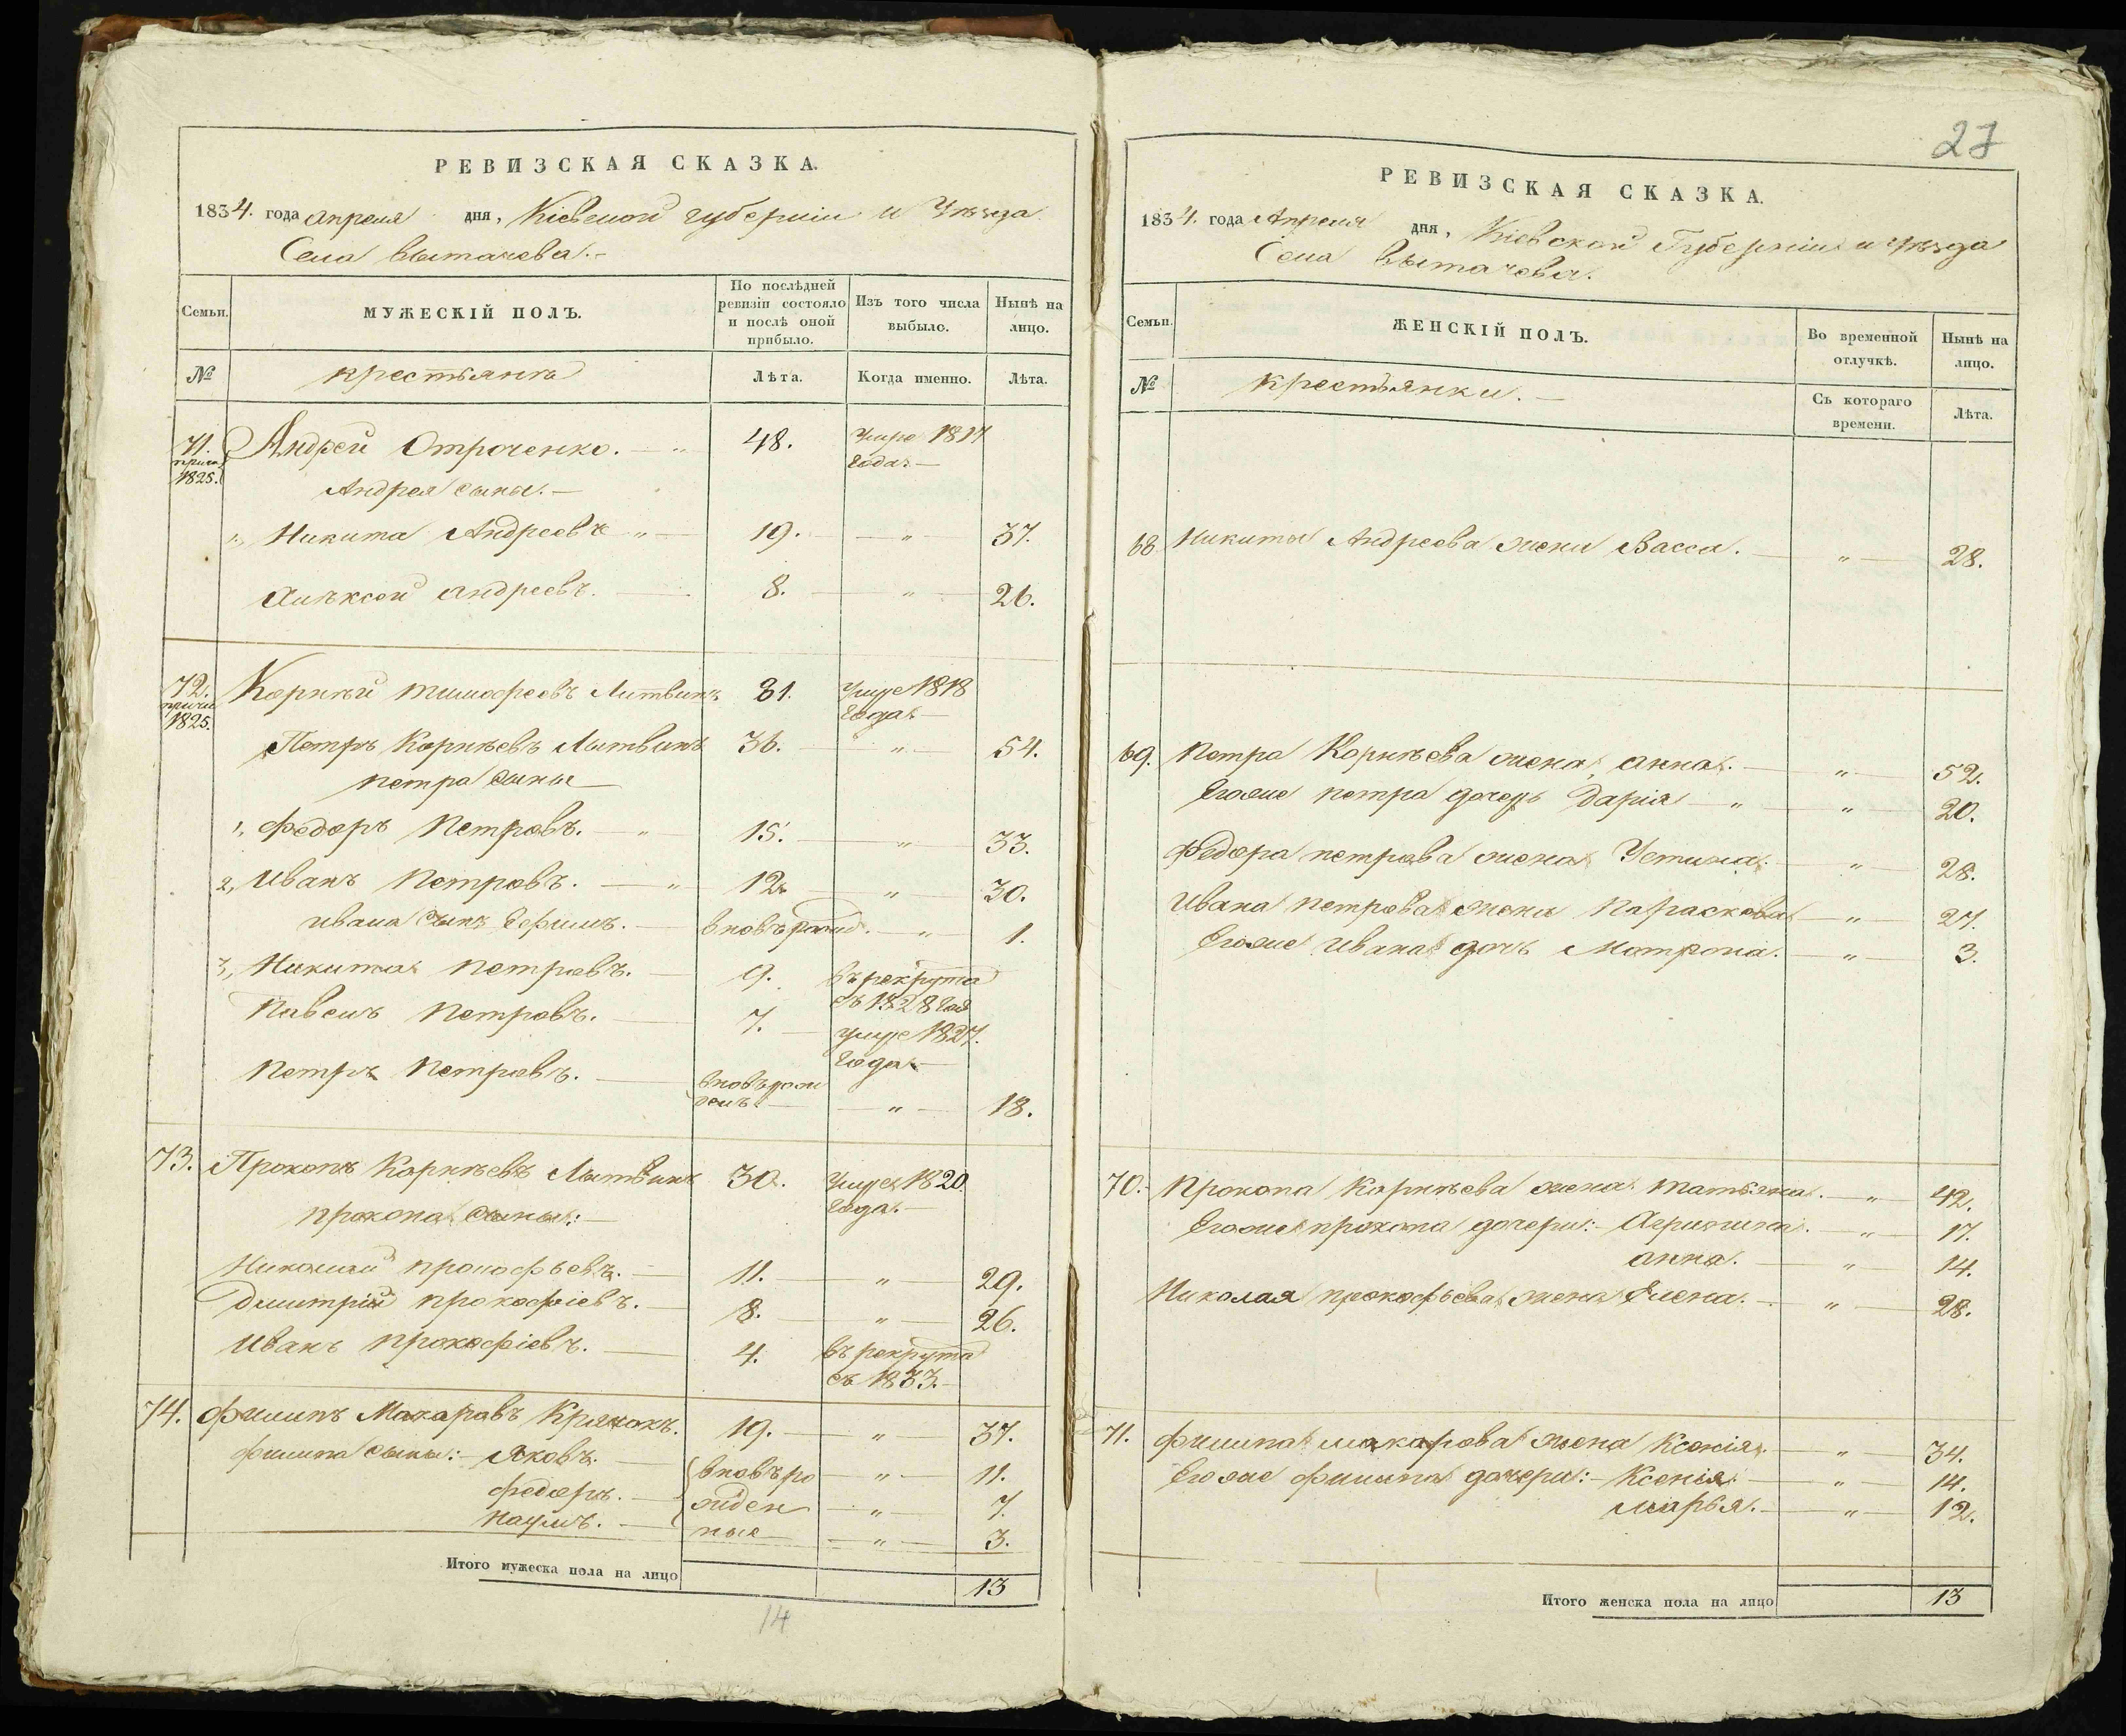 РЕВИЗСКАЯ СКАЗКА.
1834. года апреля дня, Кіевской губерніи и Уѣзда
Села Вытачева.-
Семьи. МУЖЕСКІЙ ПОЛЪ. По послѣдней ревизіи состояло и послѣ оной прибыло. Изъ того числа выбыло. Нынѣ на лицо.
№ крестьяня Лѣта. Когда именно. Лѣта.
71. Андрей Отроченко. — 48. умре 1817
1825. года.—
Андрея сыны.—
1, Никита Андреевъ " — 19. — " 37.
Алѣксей андреевъ. — 8. — " — 26.
72. Корнѣй тимофеевъ Литвинъ 81. умре 1818
1825. года.—
Петръ Корнѣевъ Лытвинъ 36. — " — 54.
петра сыны —
1, Федоръ Петровъ. — " 15. — " — 33.
2, Иванъ Петровъ. — " 12. — " — 30.
ивана сынъ Ефимъ. — вновърожд. — " — 1.
3, Никита Петровъ. — 9. въ рекрута
съ 1828 года
Павелъ Петровъ. — 7. — умре 1827.
года.—
Петръ Петровъ. — вновърож
денъ. — — " — 18.
73. Прокопъ Корнѣевъ Лытвинъ 30. умре 1820.
года.—
прокопа сыны:—
Николай прокофьевъ. — 11. — " — 29.
Дмитрій прокофіевъ. — 8. — " — 26.
Иванъ прокофіевъ. — 4. въ рекрута
съ 1833.—
74. Филипъ Макаровъ 19. — " — 37.
филипа сыны:— Яковъ. — вновъро — " — 11.
федоръ. — жден — " — 7.
Наумъ. — ные — " — 3.
Итого мужеска пола на лицо 13
14
27
РЕВИЗСКАЯ СКАЗКА.
1834. года Апреля дня, Кіевской Губерніи и уѣзда
Села Вытачева.
Семьи. ЖЕНСКІЙ ПОЛЪ. Во временной отлучкѣ. Нынѣ на лицо.
№ крестьянки.— Съ котораго времени. Лѣта.
68 Никиты Андреева жена Васса. — " — 28.
69. Петра Корнѣева жена анна. — " — 52.
Егоже петра дочерь Дарія — " — " — 20.
Федора петрова жена Устина. — " — 28.
Ивана петрова жена Параскева — " — 27.
Егоже Ивана дочь Матрона. — " — 3.
70. Прокопа Корнѣева жена татьяна. — " — 42.
Егоже прокопа дочери:— Агрипина. — " — 17.
анна. — " — 14.
Николая прокофьева жена Елена. — " — 28.
71. Филипа макарова жена Ксенія. — " — 34.
Егоже филипа дочери:— Ксенія — " — 14.
марья. — " — 12.
Итого женска пола на лицо 13